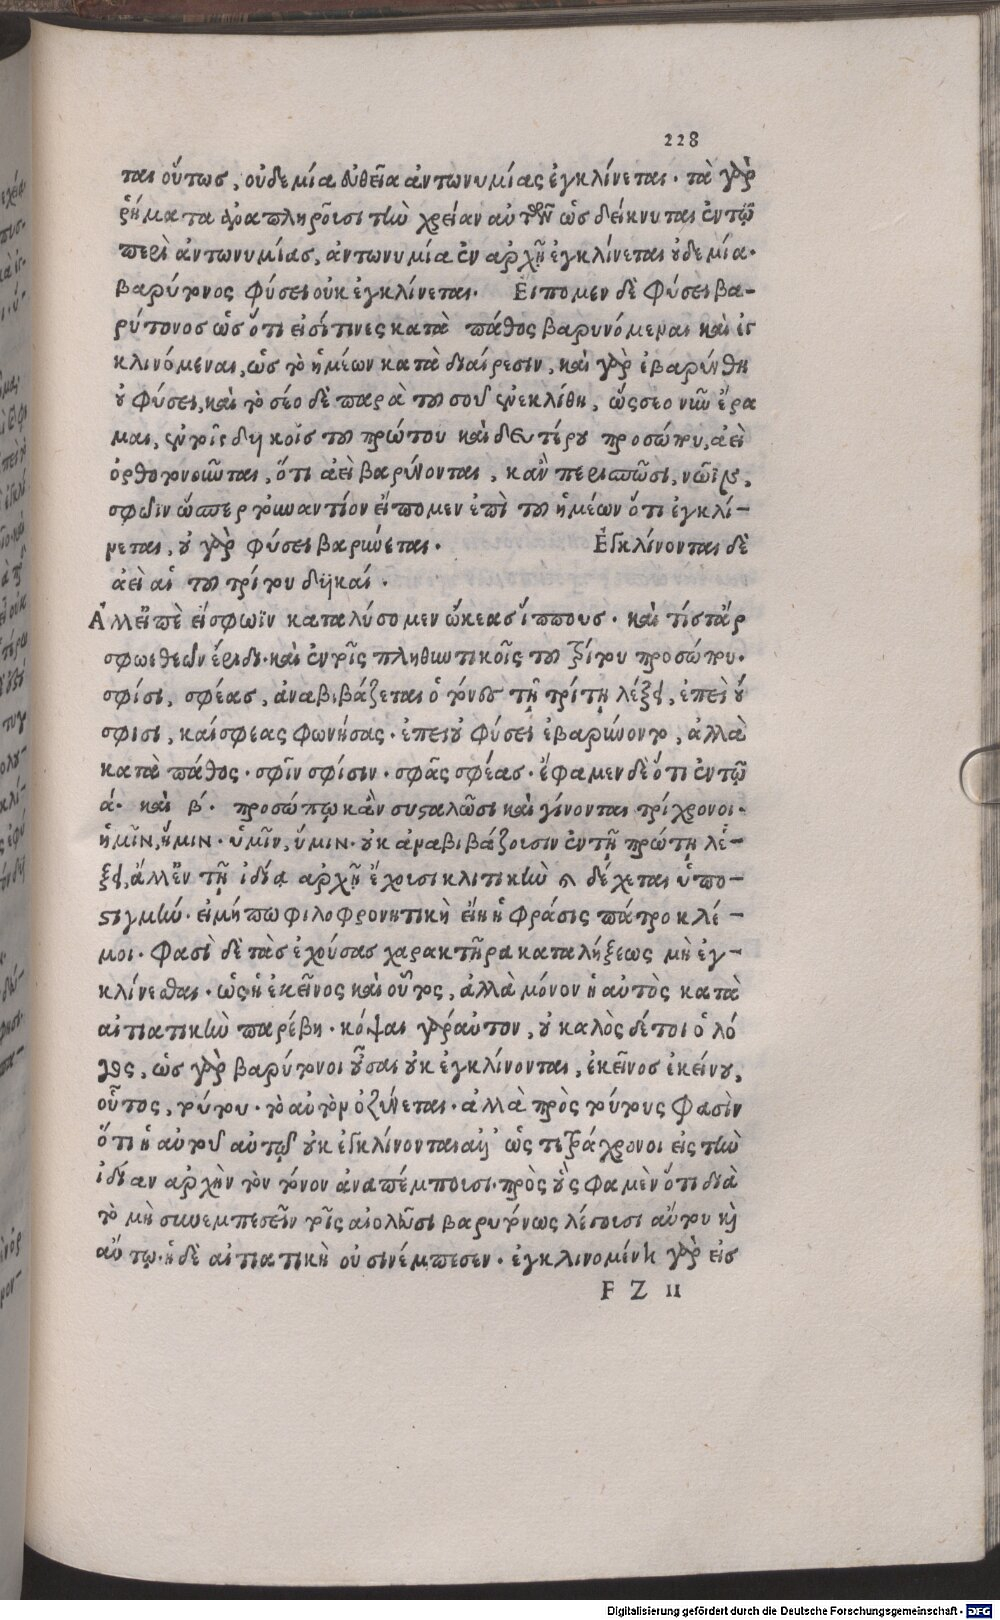 228
ται οὕτωσ, οὐδεμία εὐθεῖα ἀντωνυμίας ἐγκλίνεται· τὰ γὰρ
ῥήματα ἀναπληροῖσι τὴν χρείαν αὐτῶν ὡς δείκνυται ἐν τῷ
περὶ ἀντωνυμίασ, ἀντωνυμία ἐν αρχῇ ἐγκλίνεται οὐδεμία·
βαρύτονος φύσει οὐκ ἐγκλίνεται· Εἴπομεν δὲ φύσει βα-
ρύτονοσ ὡς ὅτι εἰσί τινες κατὰ πάθος βαρυνόμεναι καὶ ἐγ
κλινόμεναι, ὡς τὸ ἡμέων κατὰ διαίρεσιν, καὶ γὰρ ἐβαρύνθη
οὐ φύσει, καὶ τὸ σέο δὲ παρὰ τοῦ σοῦ ἐνεκλίθη, ὥς σεο νῦν ἔρα
μαι, ἐν τοῖς δυϊκοῖς τοῦ πρώτου καὶ δευτέρου προσώπου, ἀεὶ
ὀρθοτονοῦνται, ὅτι ἀεὶ βαρύνονται, κἂν περισπῶσι, νῶϊν,
σφῶϊν ὥσπερ τοὐναντίον εἴπομεν ἐπὶ τοῦ ἡμέων ὅτι ἐγκλί-
νεται, οὐ γὰρ φύσει βαρύνεται· Ἐγκλίνονται δὲ
ἀεὶ αἱ τοῦ τρίτου δυϊκαί·
Ἀλλ' εἴπὲ εἴσφωϊν καταλύσομεν ὠκεασ ἵππους· καὶ τίσ τἄρ
σφωε θεῶν ἔριδι· καὶ ἐν τοῖς πληθυντικοῖς τοῦ τρίτου προσώπου·
σφίσι, σφέασ, ἀναβιβάζεται ὁ τόνοσ τῇ τρίτῃ λέξει, ἐπεὶ οὔ
σφισι, καί σφεας φωνήσας· ἐπει οὐ φύσει ἐβαρύνοντο, ἀλλὰ
κατὰ πάθος· σφῖν σφίσιν· σφᾶς σφέασ· ἔφαμεν δὲ ὅτι ἐν τῷ
ά· καὶ β΄· προσώπῳ κἂν συσταλῶσι καὶ γίνονται τρίχρονοι·
ἡμῖν, ἥμιν· ὑμῖν, ὕμιν· οὐκ ἀναβιβάζουσιν ἐν τῇ πρώτῃ λέ-
ξει, ἀλλ' ἐν τῇ ἰδία αρχῇ ἔχουσι κλιτικὴν οὐ δέχεται ὑπο-
στιγμὴν· εἰ μήπω φιλοφρονητικὴ εἴη ἡ φράσις πάτροκλέ-
μοι· φασὶ δὲ τὰσ ἐχούσασ χαρακτῆρα καταλήξεως μὴ ἐγ-
κλίνεσθαι· ὡς ἡ ἐκεῖνος καὶ οὗτος, ἀλλὰ μόνον ἡ αὐτὸς κατὰ
αἰτιατικὴν παρέβη· κόψαι γάρ αὐτον, οὐ καλὸς δέ τοι ὁ λό
γος, ὡς γὰρ βαρύτονοι οὖσαι οὐκ ἐγκλίνονται, ἐκεῖνοσ ἐκείνου,
οὗτος, τούτου· τὸ αὐτὸν ὀξύνεται· ἀλλὰ πρὸς τούτους φασὶν
ὅτι ἡ αὐτοῦ αὐτῷ οὐκ ἐγκλίνονται αἳ ὡς τετράχρονοι εἰς τὴν
ἰδίαν αρχὴν τὸν τόνον ἀναπέμπουσι· πρὸς οὓς φαμὲν ὅτι διὰ
τὸ μὴ συνεμπεσεῖν τοῖς αἰολεῦσι βαρυτόνως λέγουσι αὔτου καὶ
αὔτῳ· ἡ δὲ αἰτιατικὴ οὐ σινέμπεσεν· ἐγκλινομένη γὰρ εἰσ
F Z II
Digitalisierung gefördert durch die Deutsche Forschungsgemeinschaft - DFG